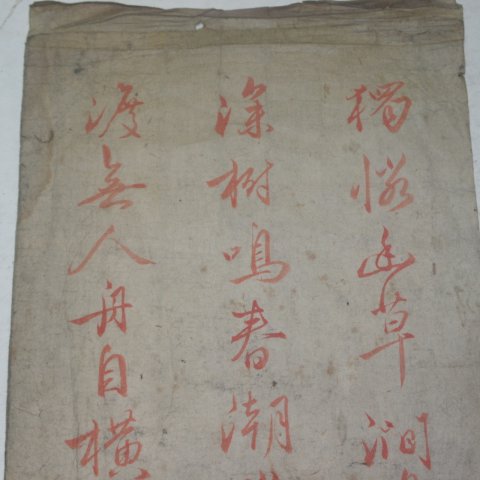 獨憐幽草澗
深樹鳴春潮
渡無人舟自橫